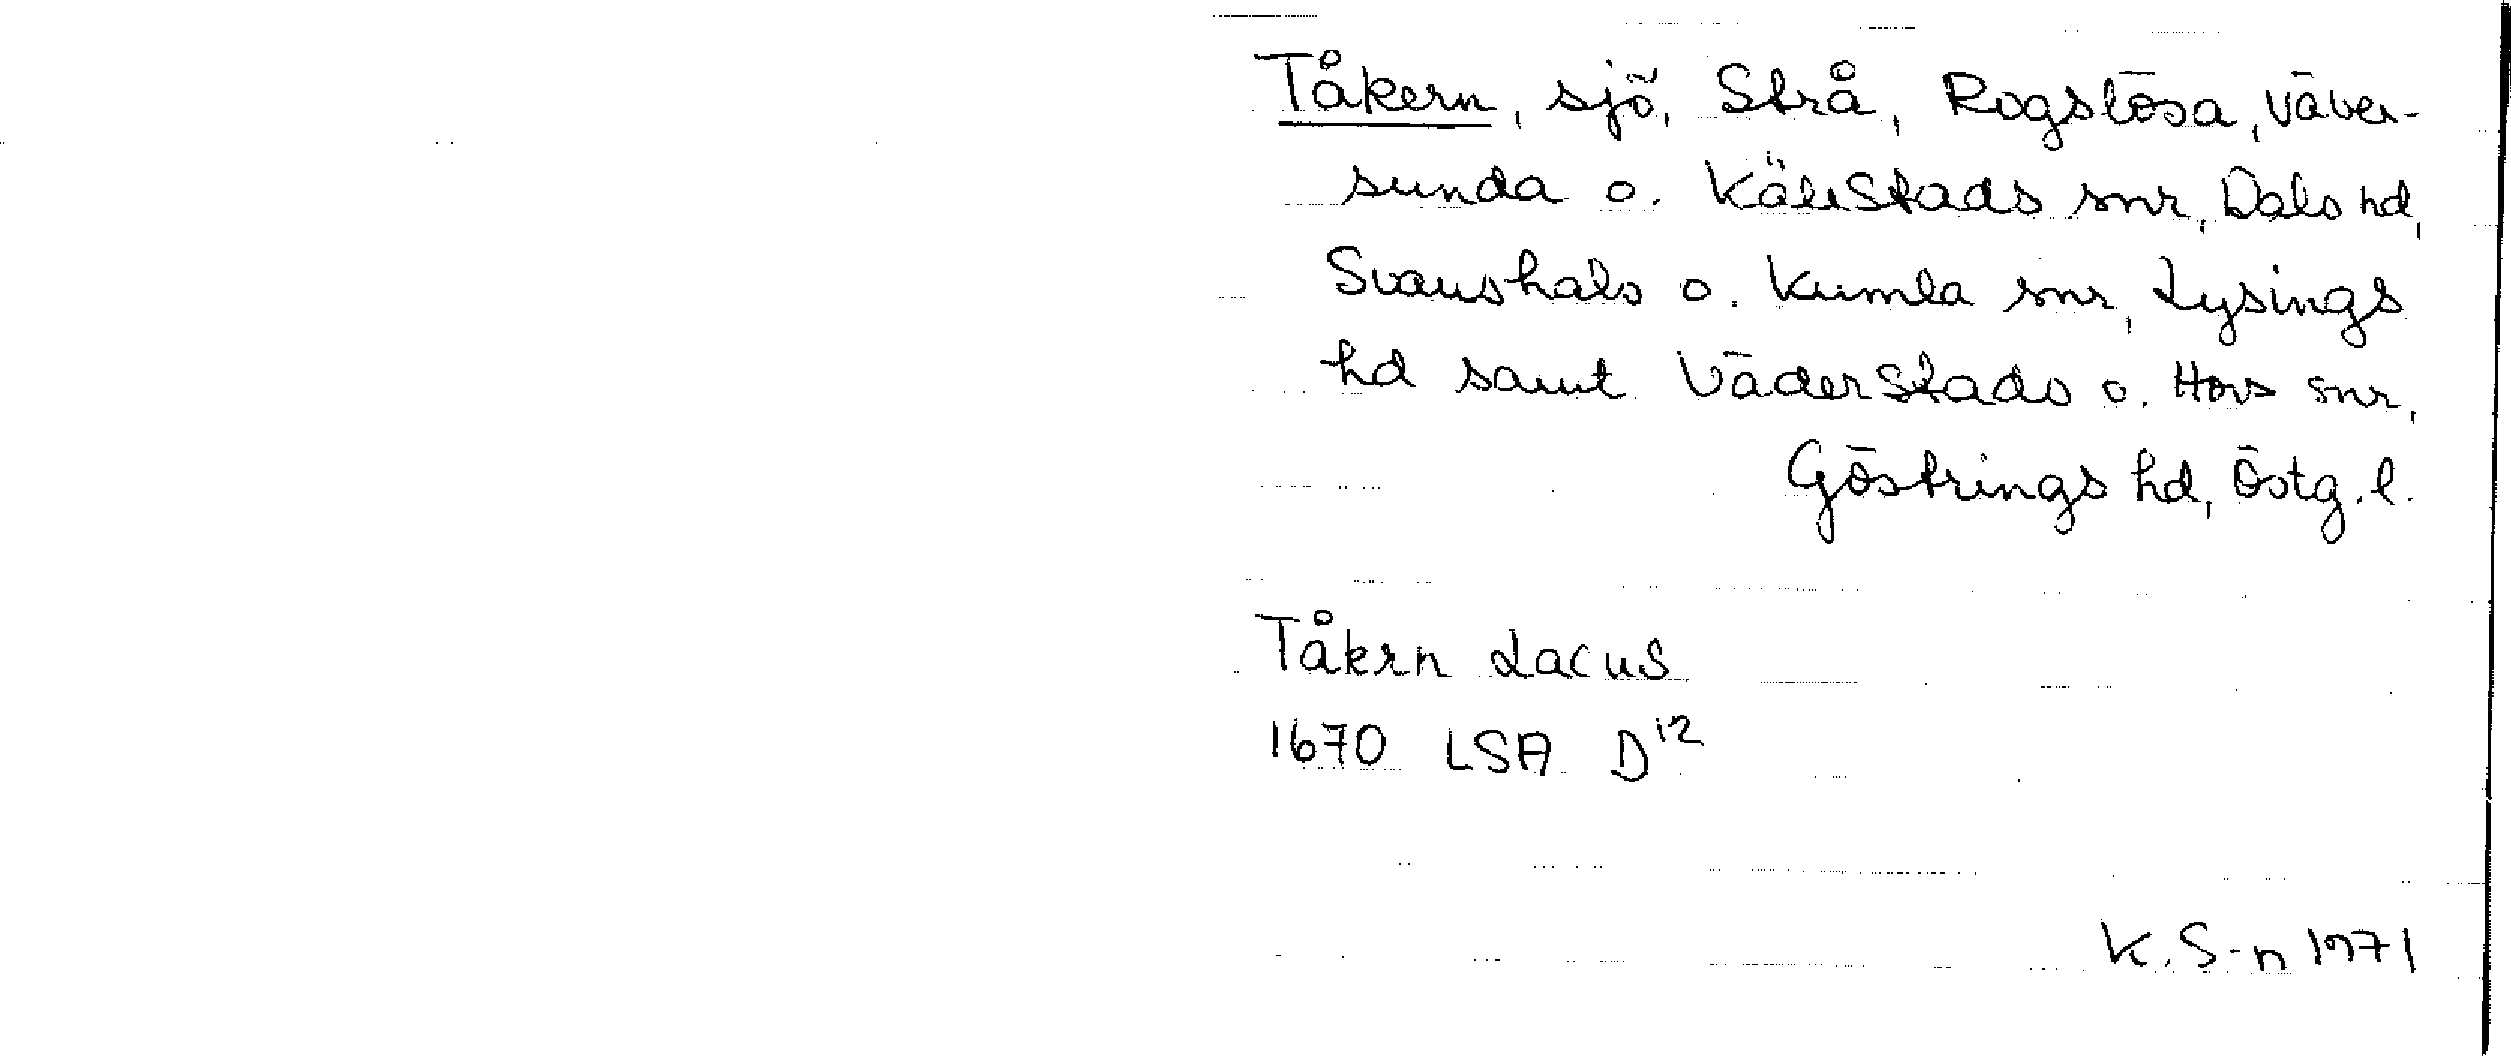 Tåkern, sjö, Strå, Rogslösa, Väver-
sunda o. Källstads snr, Dals hd,
Svanshals o. Kumla snr, Lysings
hd samt Väderstads o. Hovs snr,
Göstrings hd, Östg. l.
Tåkrn Lacus
1670 LSA D12
K. S-n 1971